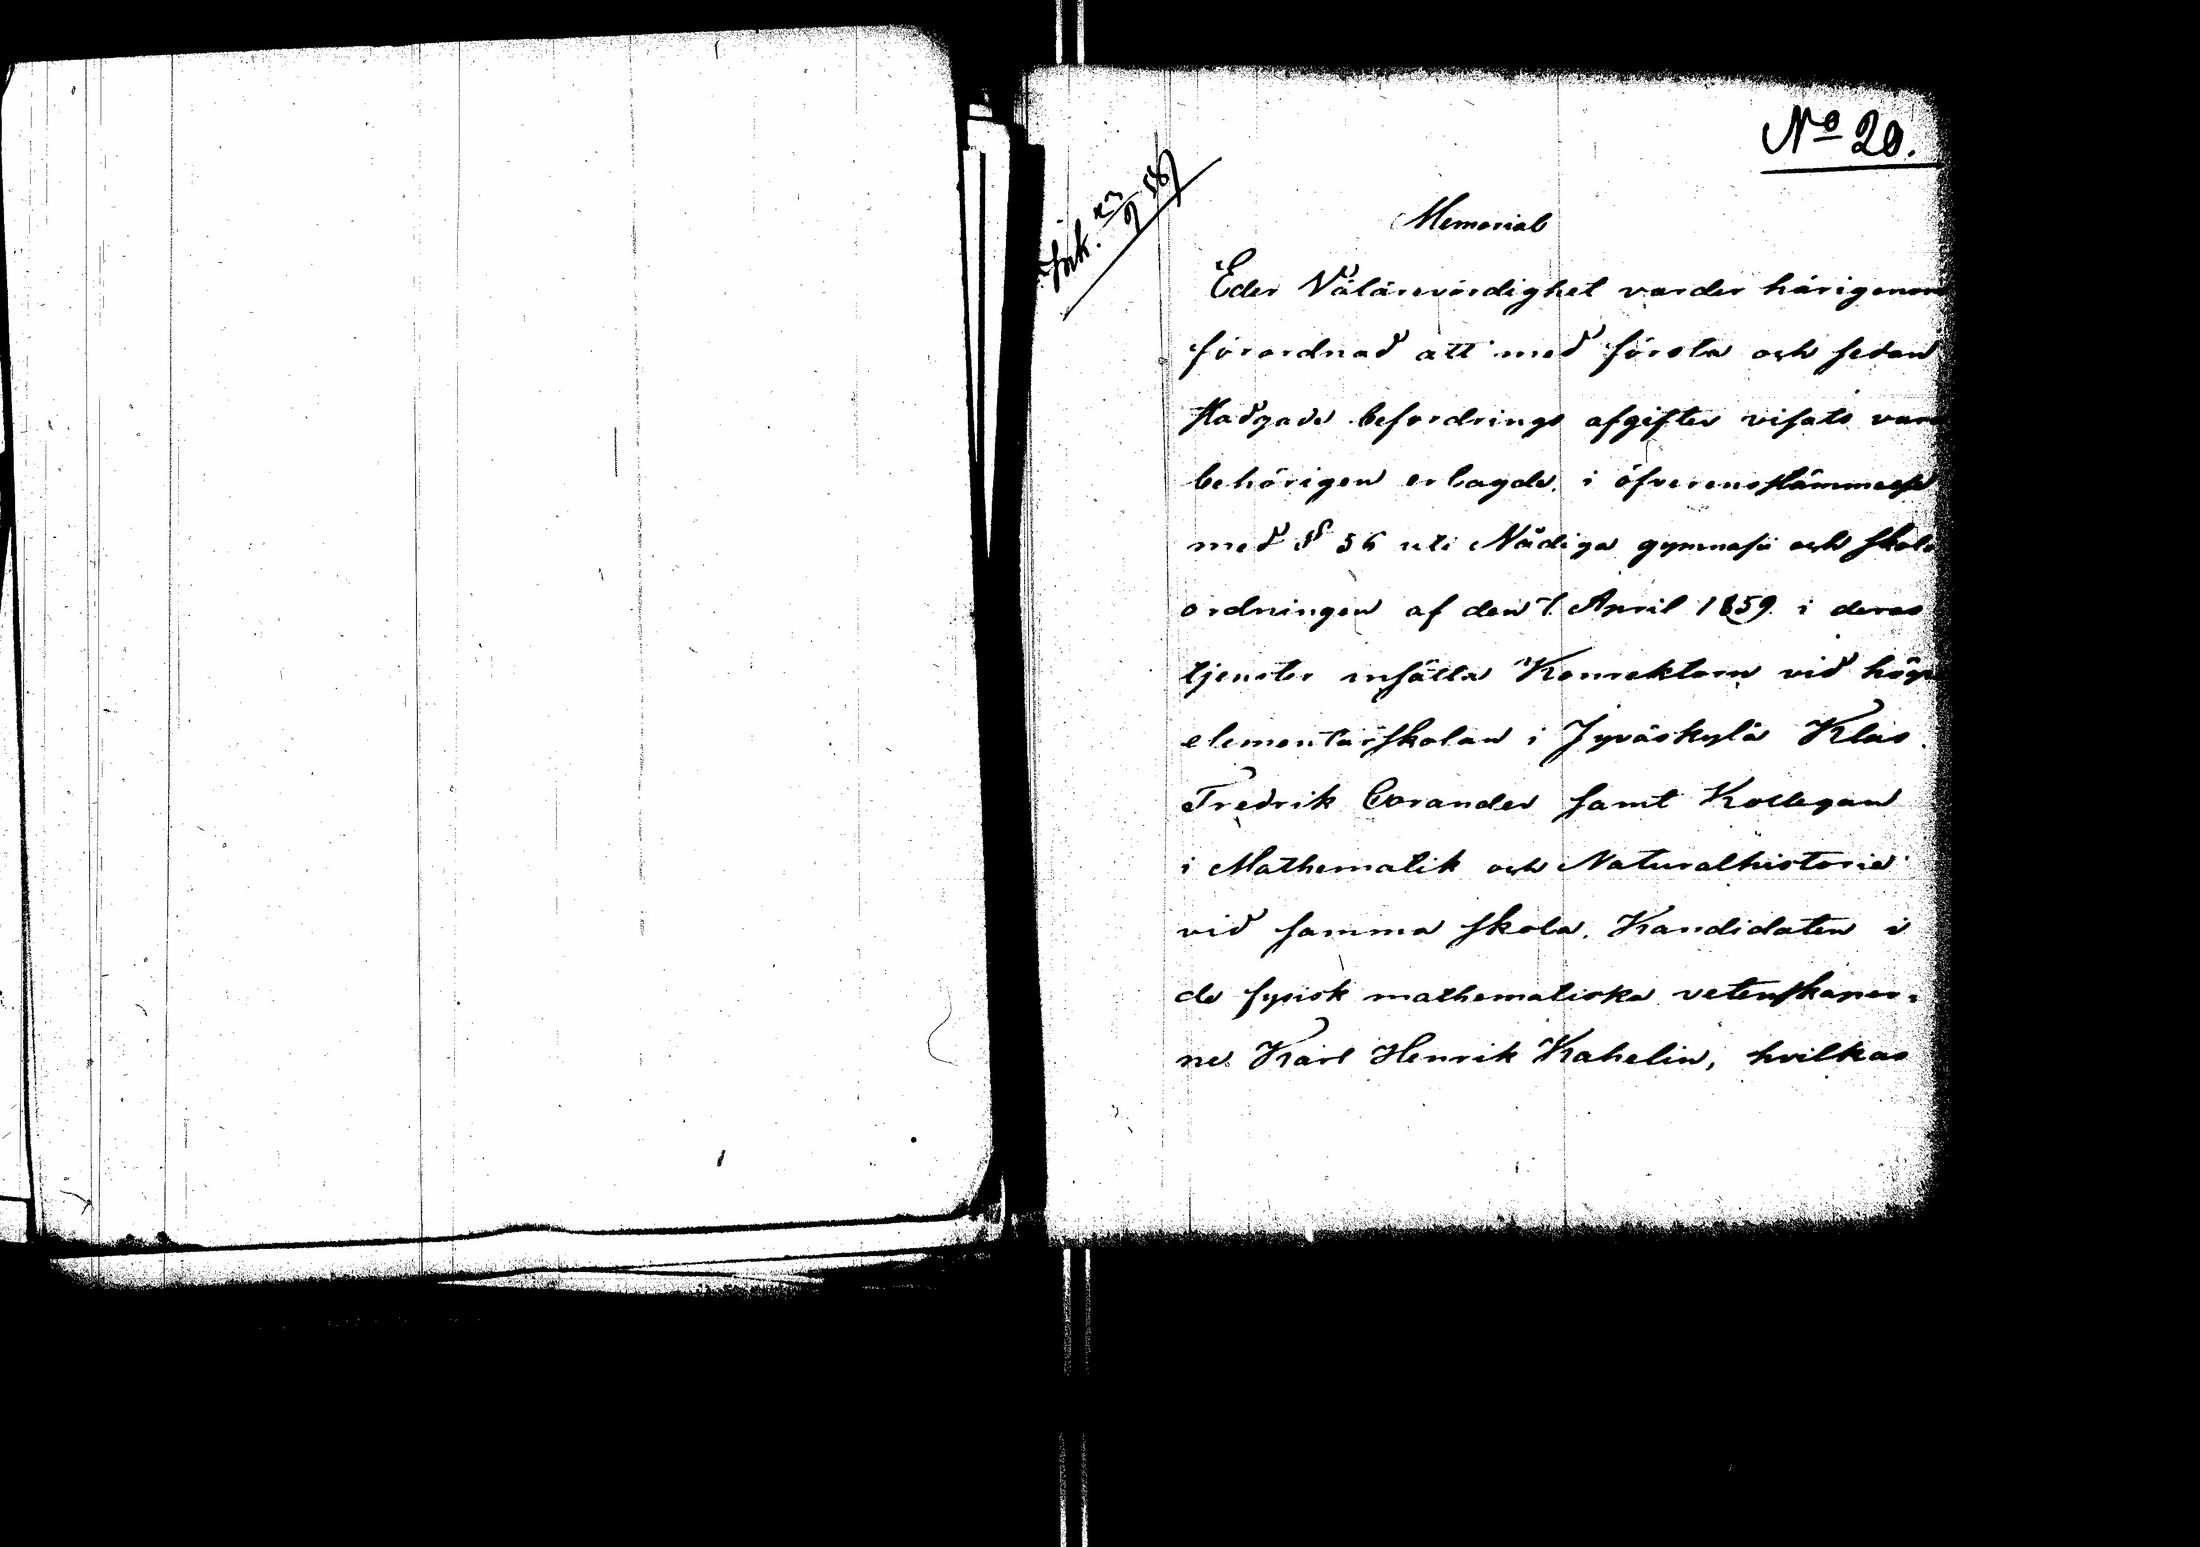 No 20.
ink. 23/9 59
Memorial
Eder Välärevördighet varder härigenom
förordnad att med första och sedan
stadgade befordrings afgifter visats vara
behörigen erlagde, i öfverensstämmelse
med § 56 uti Nådiga gymnasii och skol
ordningen af den 7. April 1859. i deras
tjenster insätta Konrektorn vid högre
elementarskolan i Jyväskylä Klas
Fredrik Corander samt Kollegan
i Mathematik och Naturalhistorie
vid samma skola, Kandidaten i
de fysisk mathematiska vetenskaper-
ne Karl Henrik Kahelin, hvilkas